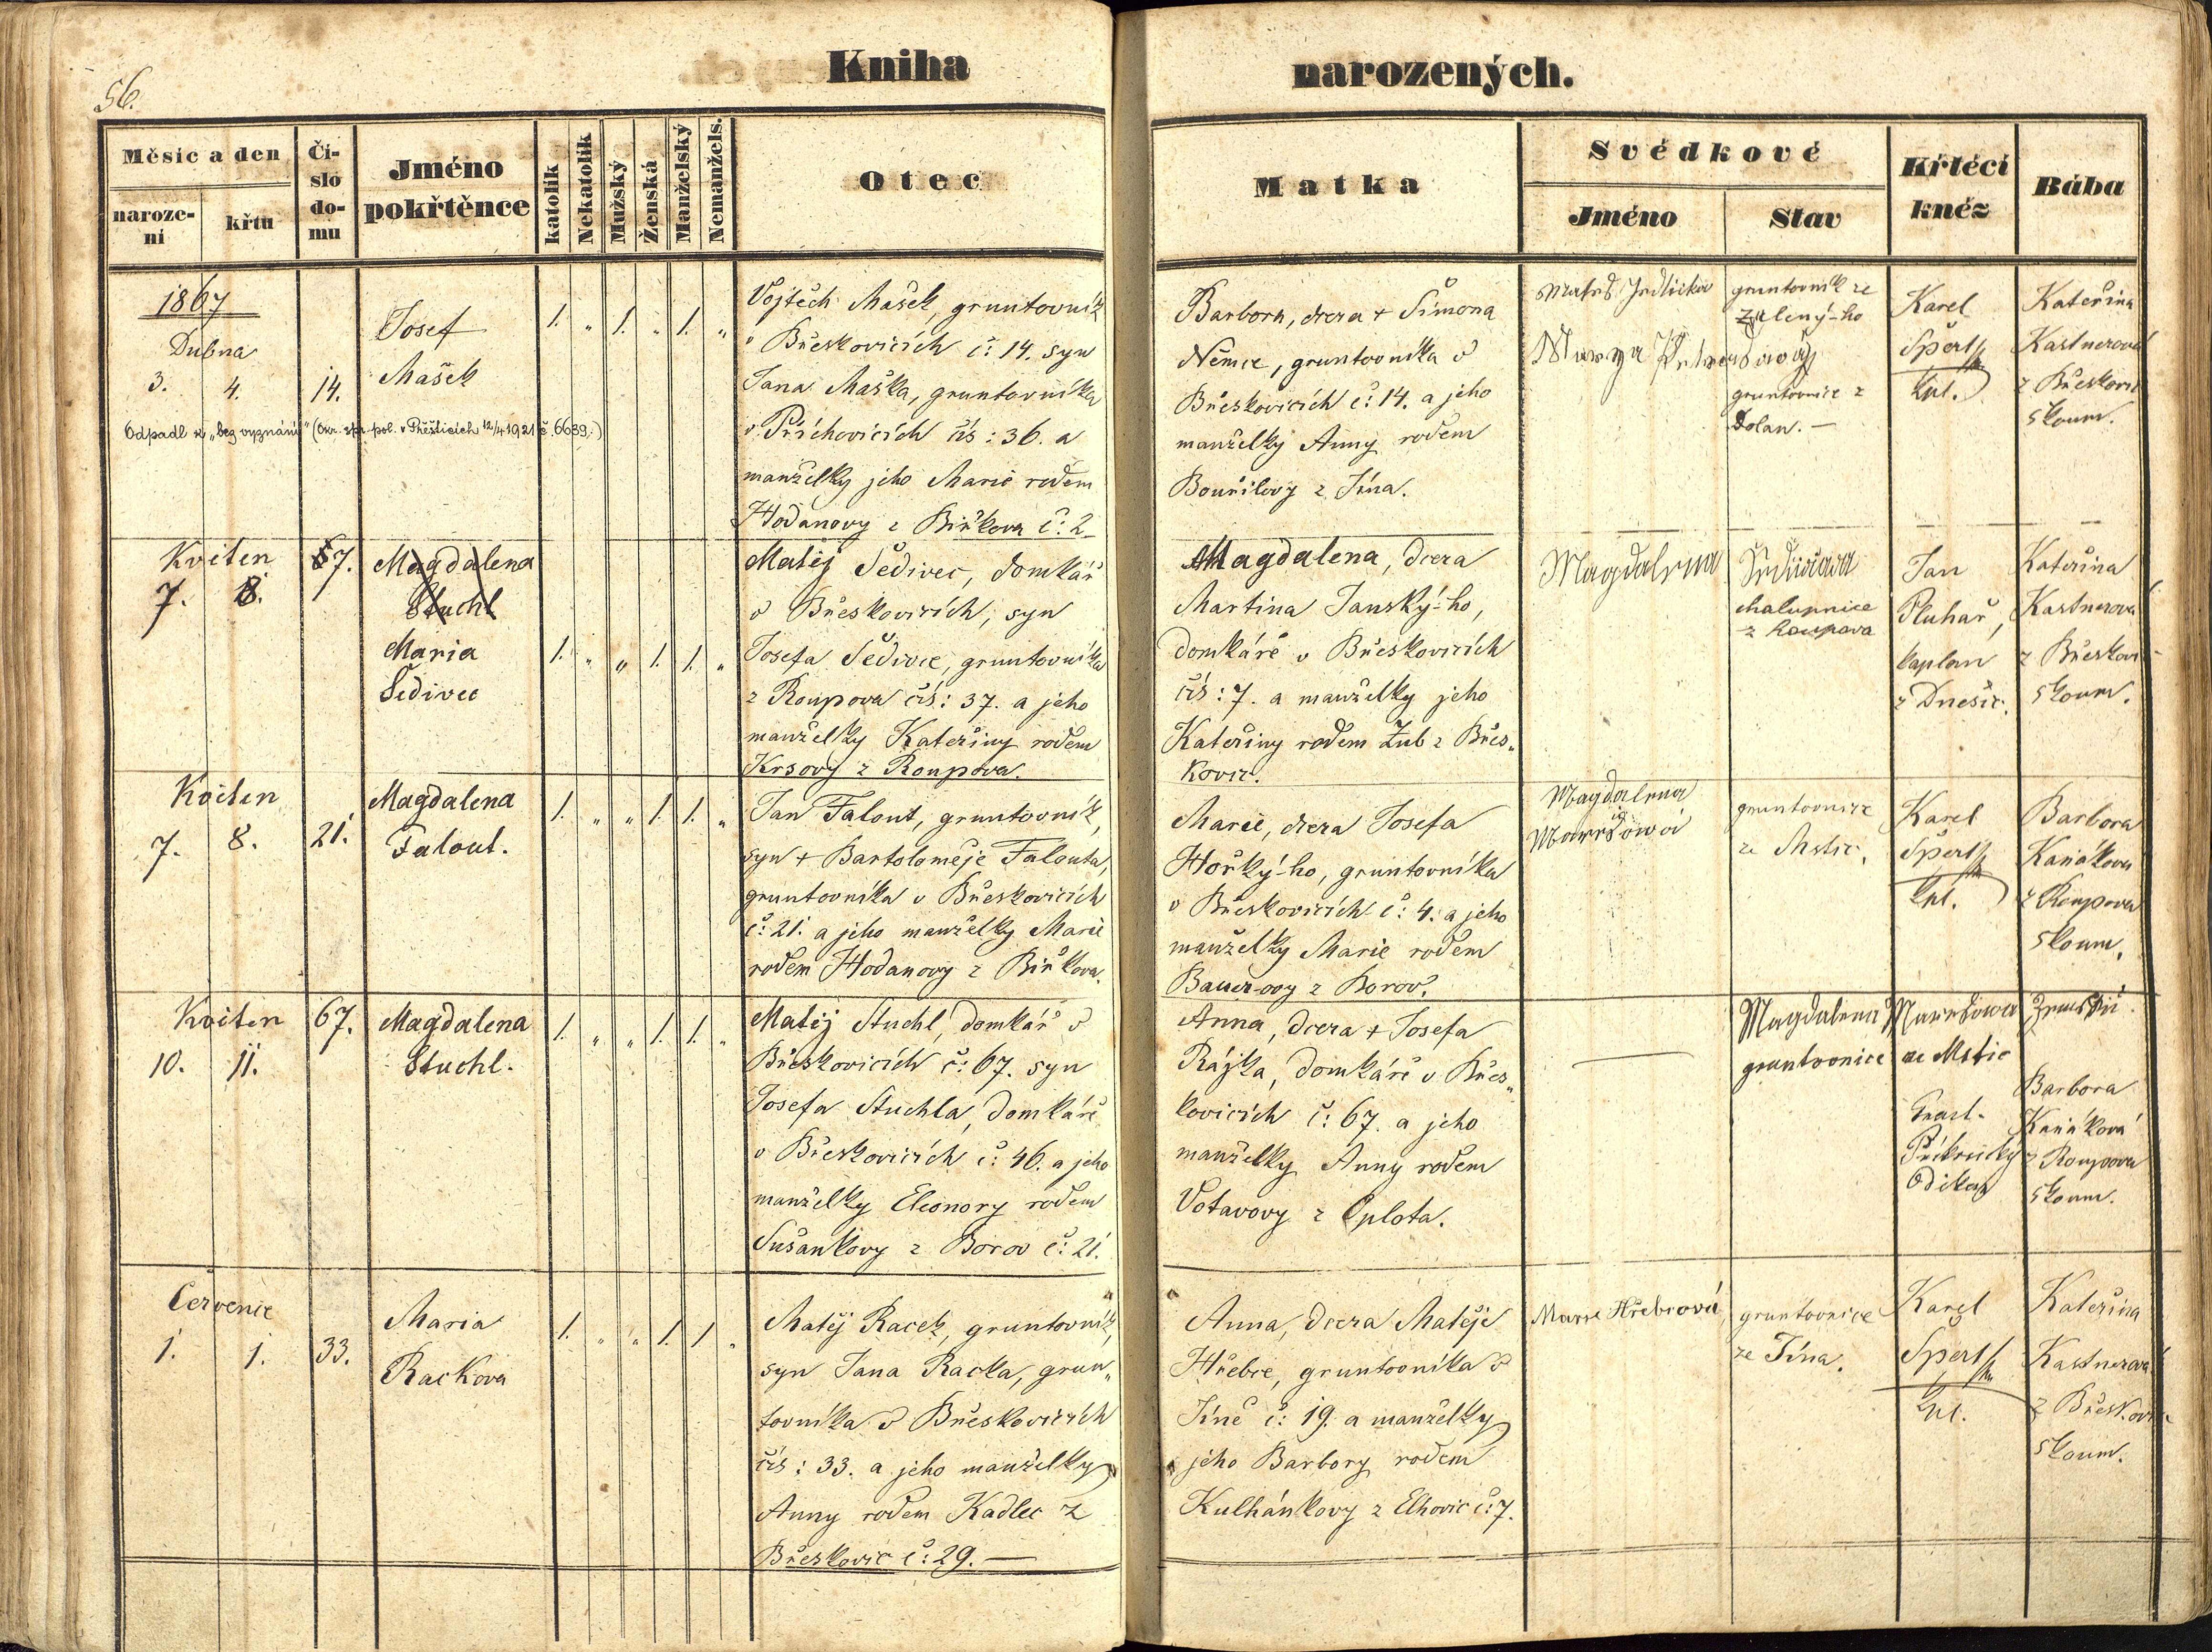 56.
Kniha narozených.
Měsíc a den
narození
křtu
Číslo domu
Jméno pokřtěnce
katolík
Nekatolík
Mužský
Ženská
Manželský
Nemanžels.
Otec
Matka
Svědkové
Jméno
Stav
Křtěcí kněz
Bába
1867
Dubna
3. 4. 14.
Josef
Mašek
1. „ 1. „ 1. „
Odpadl k „bez vyznání" (Okr. spr. pol. v Přešticích 12/4 1921 č. 6639.)
Vojtěch Mašek, gruntovník
v Břeskovicích č: 14. syn
Jana Maška, gruntovníka
v Příchovicích čís: 36. a
manželky jeho Marie rodem
Hodanovy z Biřkova č: 2
Barbora, dcera + Šimona
Němce, gruntovníka v
Břeskovicích č: 14. a jeho
manželky Anny rodem
Bouřilovy z Jína.
gruntovník ze
Zelený-ho
gruntovnice z
Dolan. —
Karel
Špert
Kpl.
Kateřina
Kastnerová
z Břeskovic
zkoum.
Květen
7. 8. 67.
Magdalena
Stuchl
Maria
Šedivec
1. „ „ 1. 1. „
Matěj Šedivec, domkář
v Břeskovicích, syn
Josefa Šedivce, gruntovníka
z Roupova čís: 37. a jeho
manželky Kateřiny rodem
Krsovy z Roupova.
Magdalena, dcera
Martina Janský-ho,
domkáře v Břeskovicích
čís: 7. a manželky jeho
Kateřiny rodem Žub z Břes„
kovic.
Magdalena
chalupnice
z Roupova
Jan
Pluhař,
kaplan
z Dnešic.
Kateřina
Kastnerova
z Břeskovic
zkoum.
Květen
7. 8. 21.
Magdalena
Falout.
1. „ „ 1. 1. „
Jan Falout, gruntovník,
syn + Bartoloměje Falouta,
gruntovníka v Břeskovicích
č: 21. a jeho manželky Marie
rodem Hodanovy z Biřkova.
Marie, dcera Josefa
Hořký-ho, gruntovníka
v Břeskovicích č: 4. a jeho
manželky Marie rodem
Bauer-ovy z Borov.
Magdalena
Marešowá
gruntovnice
ze Mstic.
Karel
Špert
Kpl.
Barbora
Kaňáková
z Roupova
zkoum.
Květen
10. 11. 67.
Magdalena
Stuchl.
1. „ „ 1. 1. „
Matěj Stuchl, domkář v
Břeskovicích č: 67. syn
Josefa Stuchla, domkáře
v Břeskovicích č: 46. a jeho
manželky Eleonory rodem
Sušankovy z Borov č: 21.
Anna, dcera + Josefa
Rájka, domkáře v Břes„
kovicích č: 67. a jeho
manželky Anny rodem
Votavovy z Oplota.
Magdalena Marešowa
gruntovnice ze Mstic
Barbora
Kaňáková
z Roupova
zkoum.
Červenec
1. 1. 33.
Maria
Rackova
1. „ „ 1. 1. „
Matěj Racek, gruntovník,
syn Jana Racka, grun„
tovníka v Břeskovicích
čís: 33. a jeho manželky
Anny rodem Kadlec z
Břeskovic č: 29. —
Anna, dcera Matěje
Hřebce, gruntovníka v
Jíně č: 19. a manželky
jeho Barbory rodem
Kulhánkovy z Elhovic č: 7.
Marie Hřebcová
gruntovnice
ze Jína.
Karel
Špert
Kpl.
Kateřina
Kastnerová
z Břeskovic
zkoum.